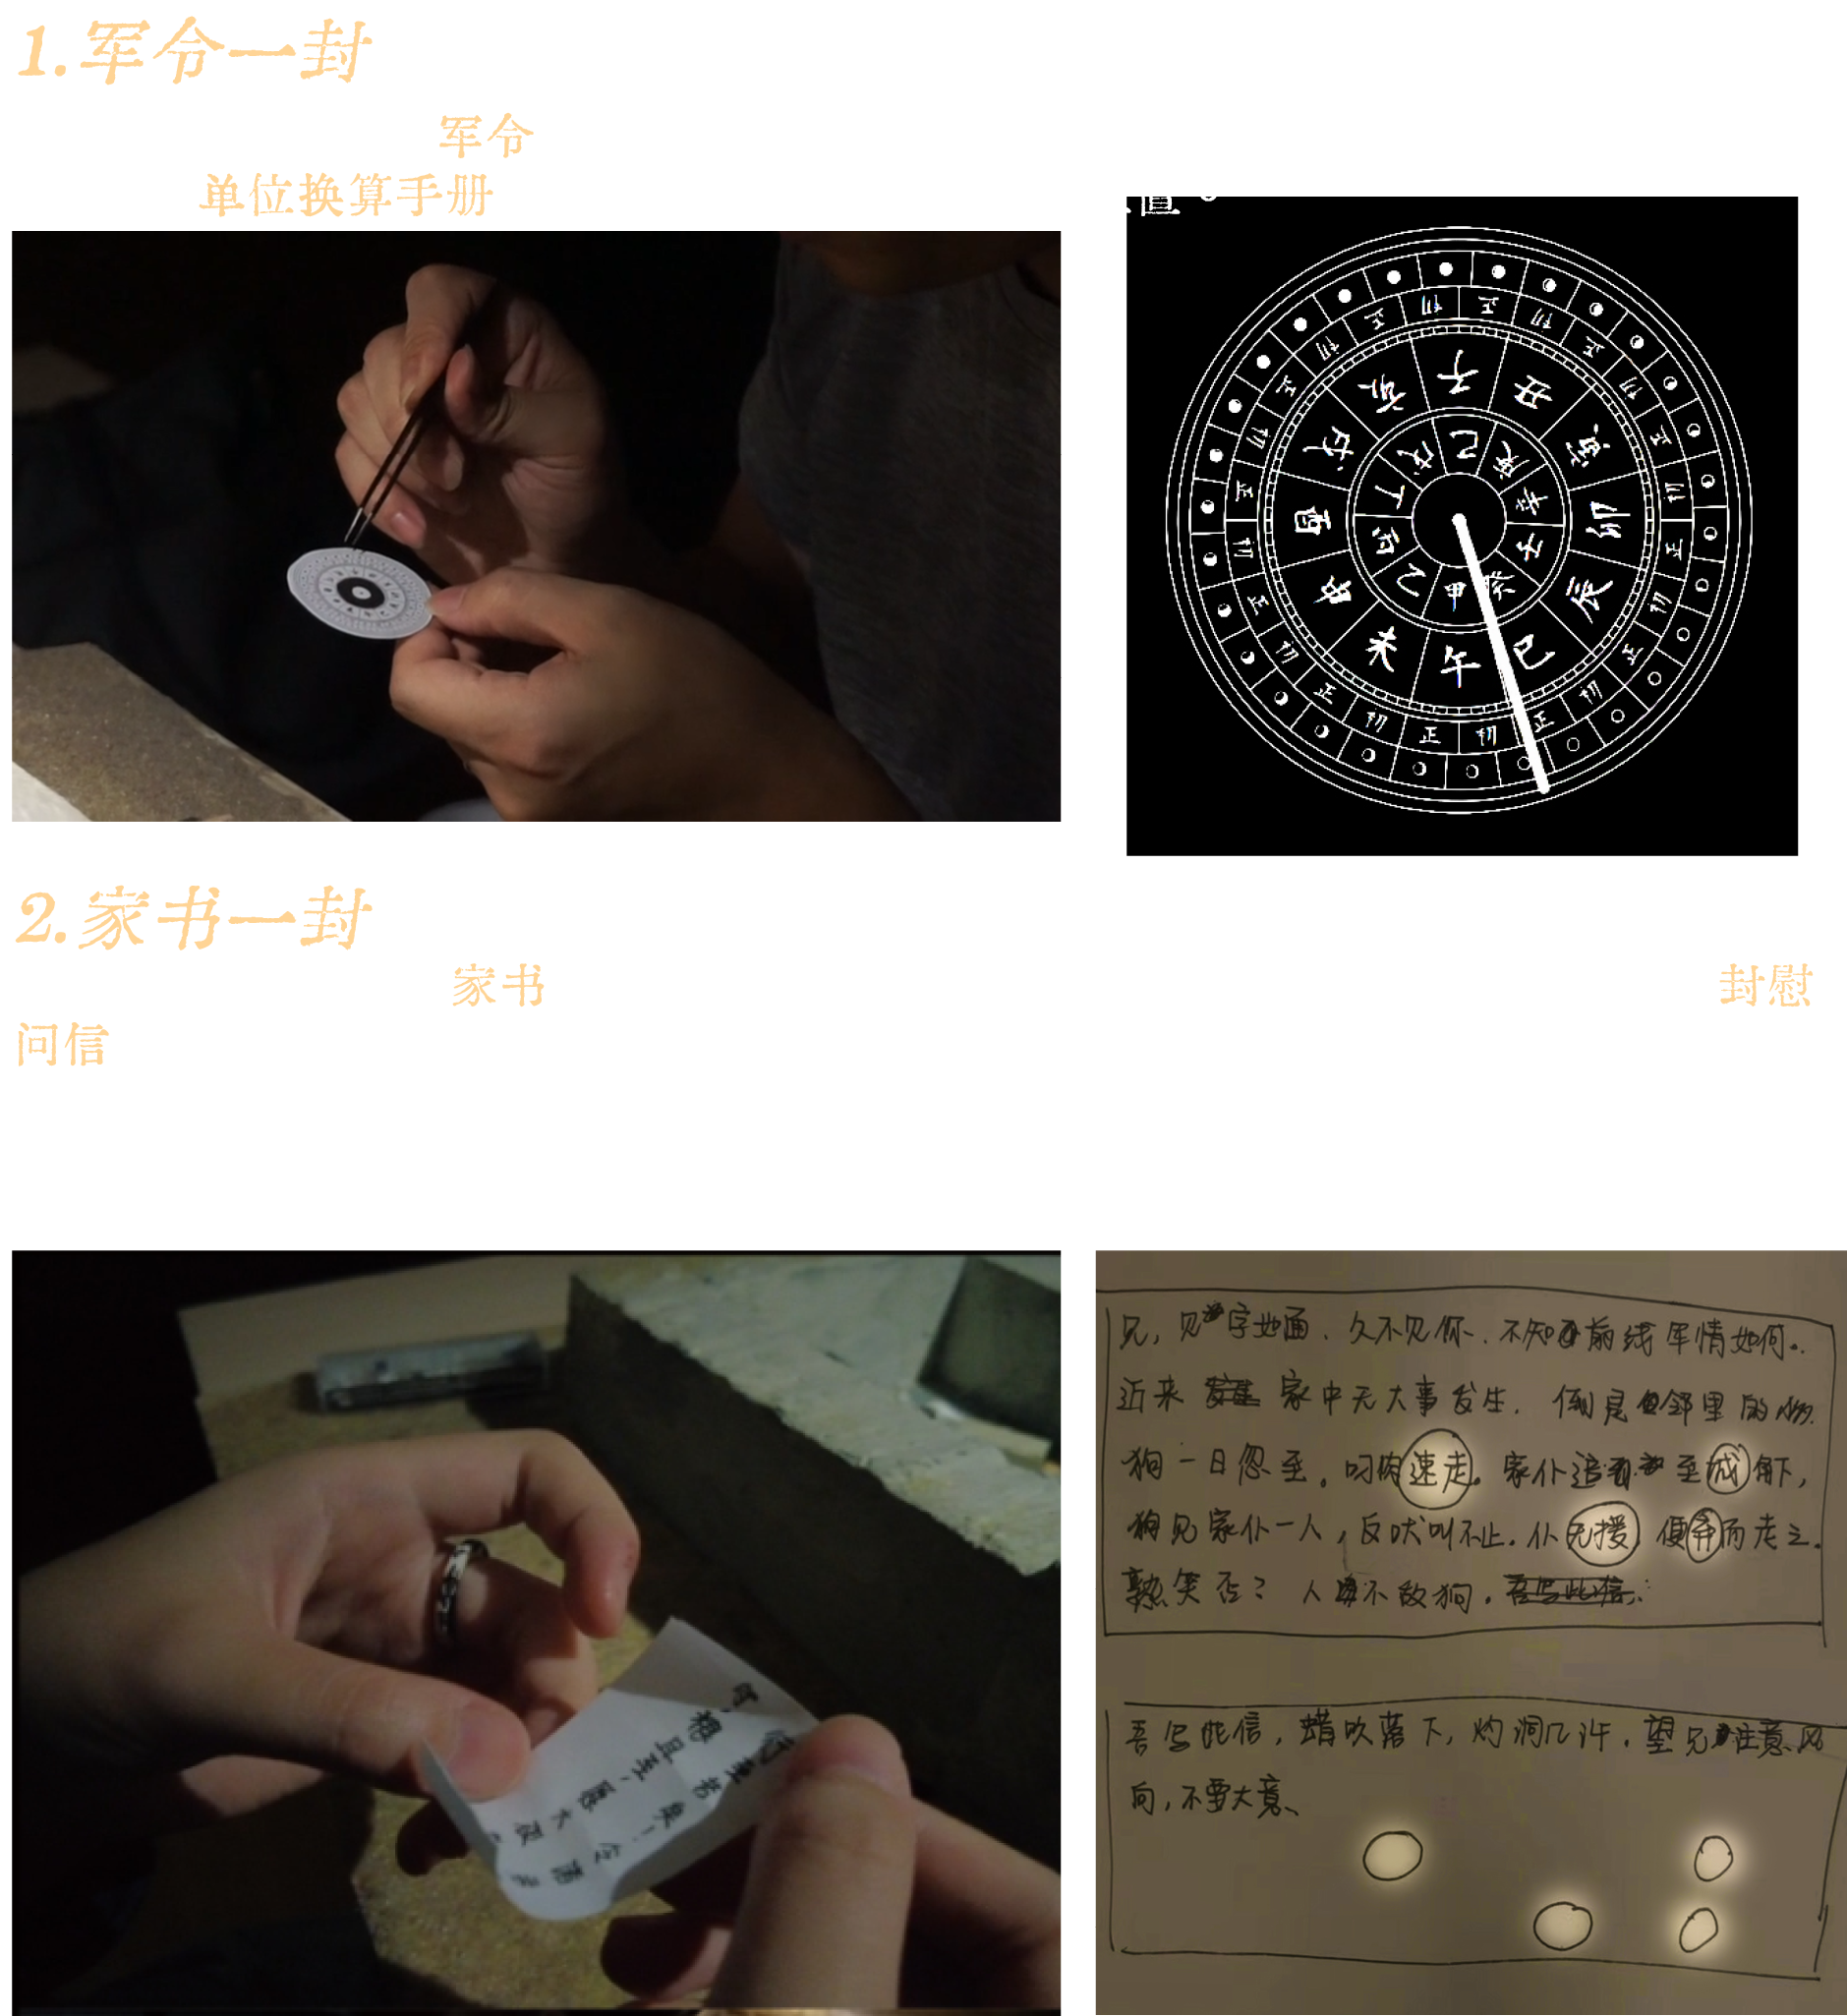 1.军令一封
军令
单位换算手册
置。
子
丑
寅
卯
辰
巳
午
未
申
酉
戌
亥
甲
乙
丙
丁
戊
己
辛
癸
正 初 正 初 正 初 正 初 正 初 正 初 正 初 正 初 正 初 正 初 正 初 正 初
2.家书一封
家书
封慰
问信
兄，见字如面、久不见你、不知前线军情如何。
近来 家中无大事发生，倒是邻里的
狗一日忽至。叼肉速走。家仆追至城角下，
狗见家仆一人，反吠叫不止。仆无援，便弃而走之。
孰笑否？人不敌狗。吾写此信
吾写此信，蜡吹落下，灼洞几许，望兄注意风
向，不要大意、